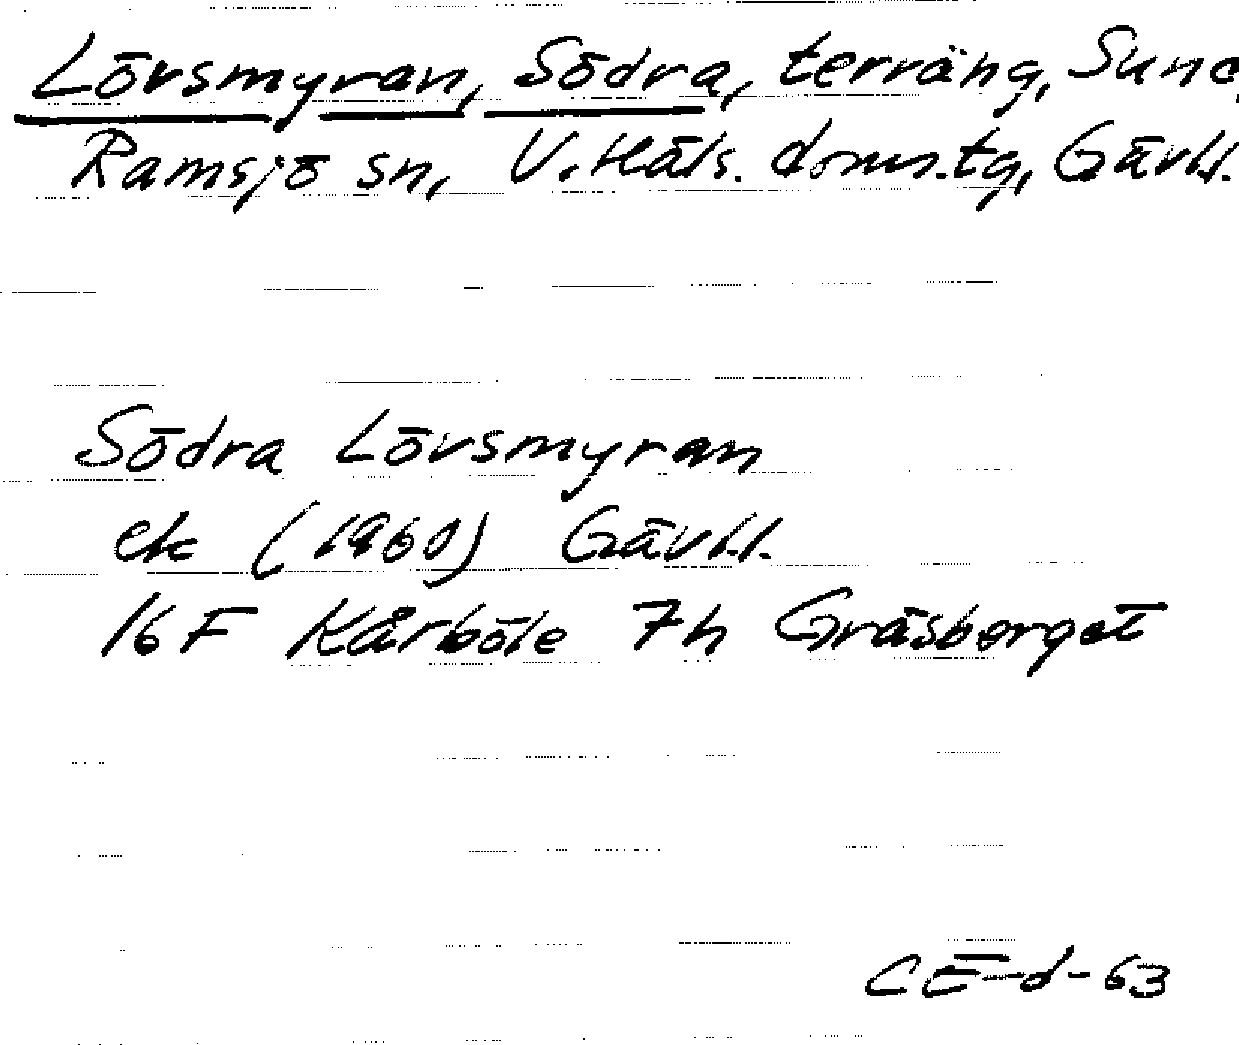 Lövsmyran, Södra, terräng,
Ramsjö sn, V. Häls. doms.tg, Gävl.l.
Södra Lövsmyran
ek (1960) Gävl.l.
16 F Kårböle 7h Gräsberget
CE-d-63